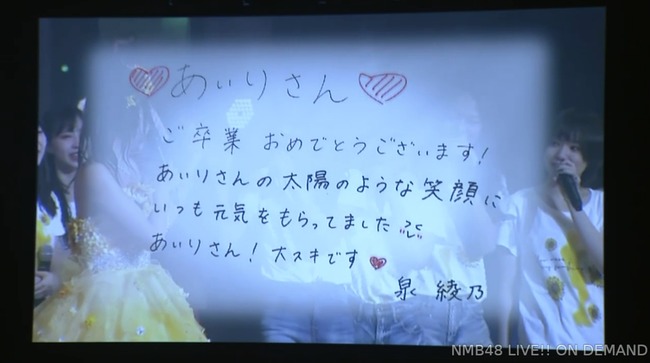 あいりさん
ご卒業 おめでとうございます!
あいりさんの太陽のような笑顔に
いつも元気をもらってました
あいりさん!大スキです
泉 綾乃
NMB48 LIVE!! ON DEMAND